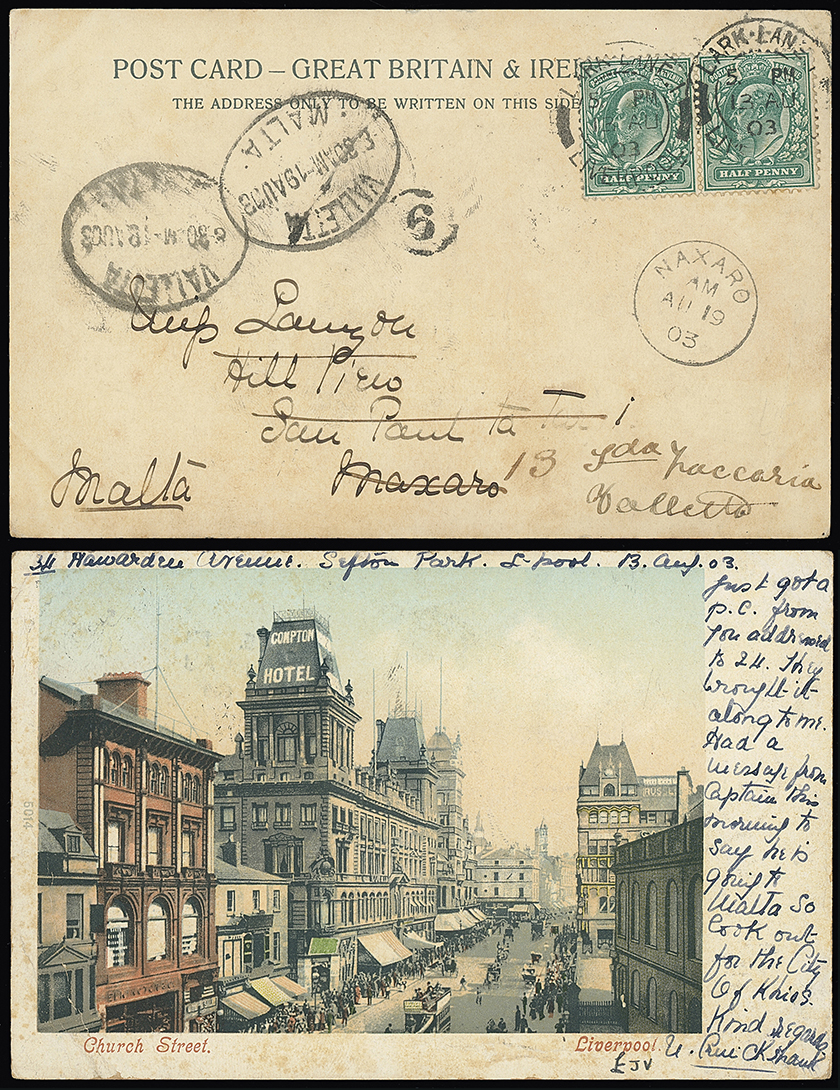 POST CARD – GREAT BRITAIN & IREL
THE ADDRESS ONLY TO BE WRITTEN ON THIS SIDE
LARK-LANE
5 PM
13 AU
03
LARK-LANE
5 PM
13 AU
03
HALF PENNY
HALF PENNY
MALTA
6.30AM-19AU03
VALLETTA
6.30 M-19AU03
VALLETTA
9
NAXARO
AM
AU 19
03
Hill View
San Paul ta
Malta
Naxaro 13 Sda Zaccaria
Valletta
34 Hawarden Avenue. Sefton Park. L-pool. 13. Aug. 03.
Just got a
p.c. from
you addressed
to 24. They
brought it
along to me.
Had a
message from
Captain this
morning to
say he is
going to
Malta so
look out
for the City
Of
Kind regards
COMPTON
HOTEL
5014
Church Street.
Liverpool.
EJV